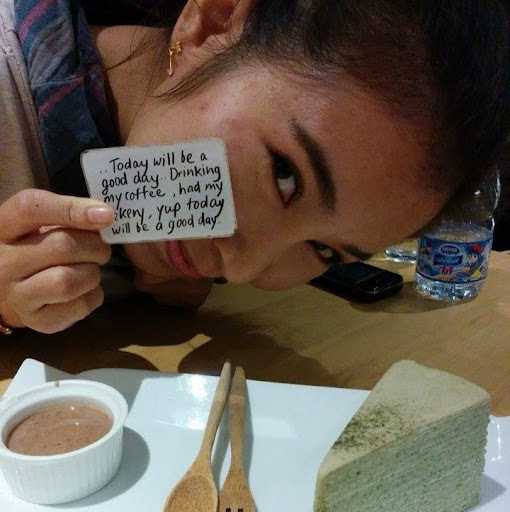 ..Today will be a
good day.. Drinking
my coffee, had my
will be a good day.
yup today